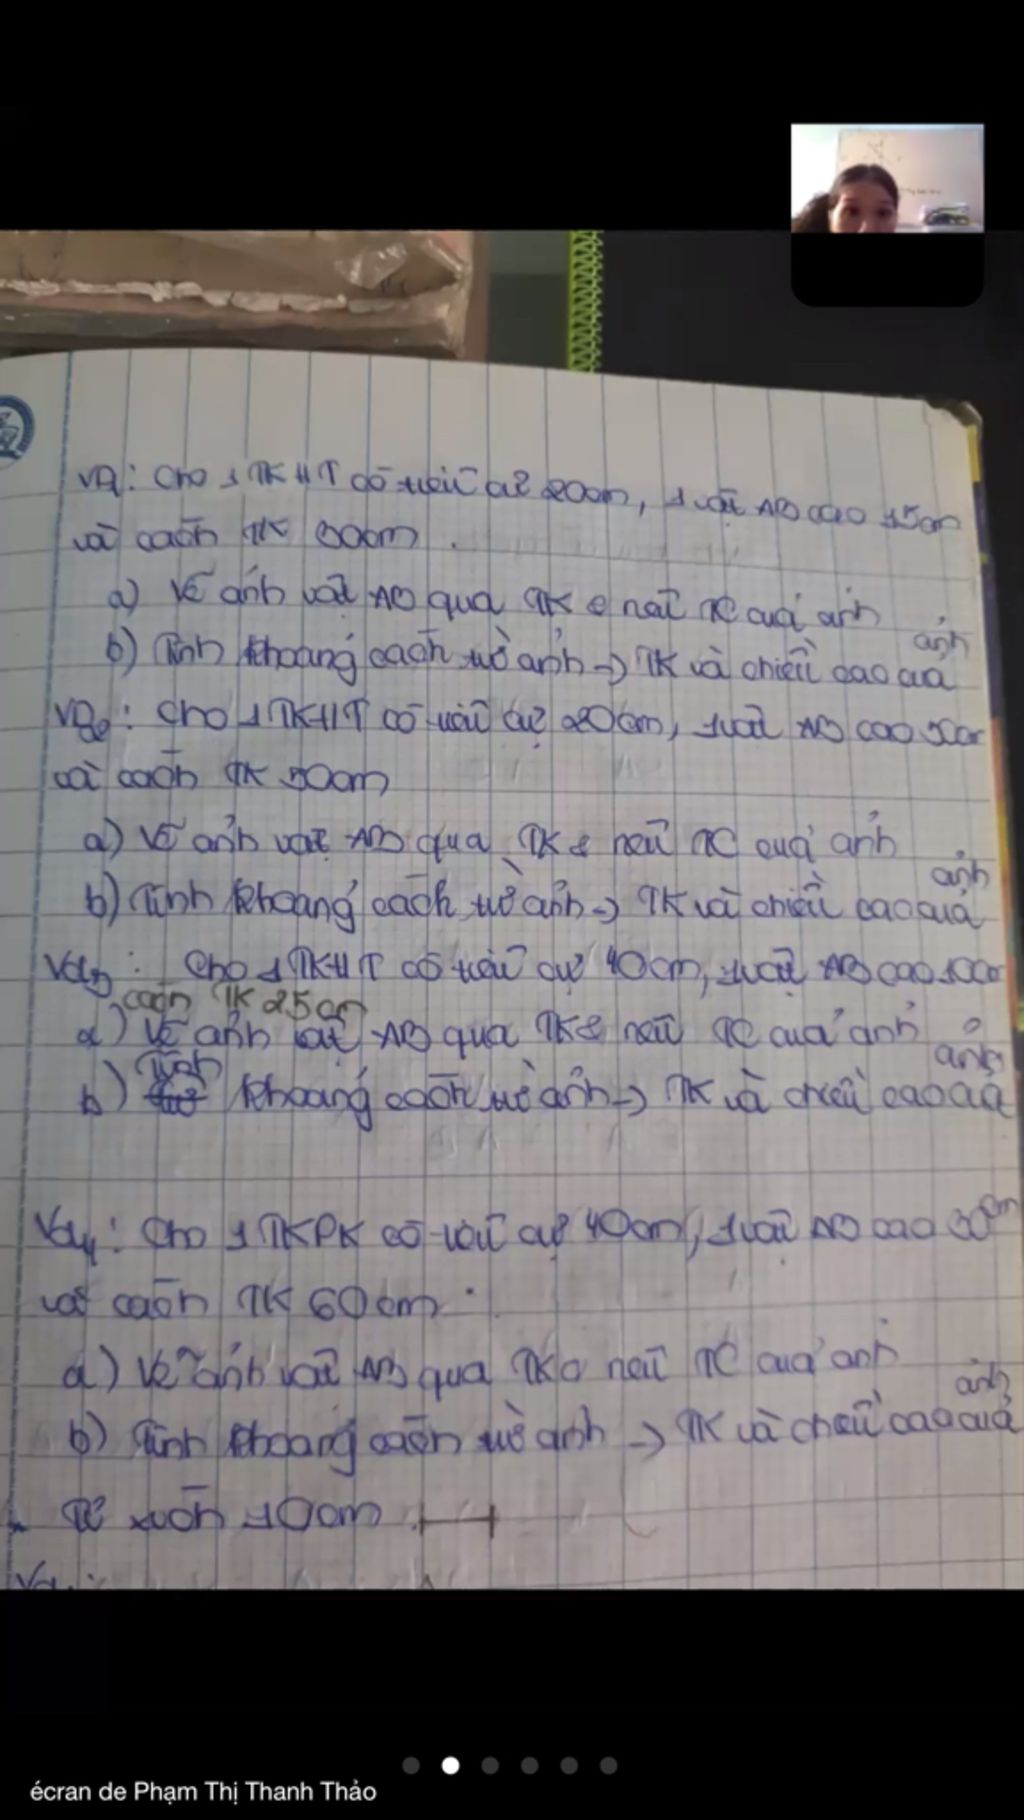 Vd₁: Cho 1 TKHT có tiêu cự 20cm, 1 vật AB cao 15cm
và cách TK 30cm.
a) Vẽ ảnh vật AB qua TK & nêu TC của ảnh
b) Tính khoảng cách từ ảnh → TK và chiều cao của ảnh
Vd₂: Cho 1 TKHT có tiêu cự 20cm, 1 vật AB cao
và cách TK 50cm
a) Vẽ ảnh vật AB qua TK & nêu TC của ảnh
b) Tính khoảng cách từ ảnh → TK và chiều cao của ảnh
Vd₃: Cho 1 TKHT có tiêu cự 40cm, 1 vật AB cao
cách TK 25cm
a) Vẽ ảnh vật AB qua TK & nêu TC của ảnh
b) Tính khoảng cách từ ảnh → TK và chiều cao của ảnh
Vd₄: Cho 1 TKPK có tiêu cự 40cm, 1 vật AB cao 30cm
và cách TK 60cm.
a) Vẽ ảnh vật AB qua TK & nêu TC của ảnh
b) Tính khoảng cách từ ảnh → TK và chiều cao của ảnh
Tỉ xích 10cm
écran de Phạm Thị Thanh Thảo